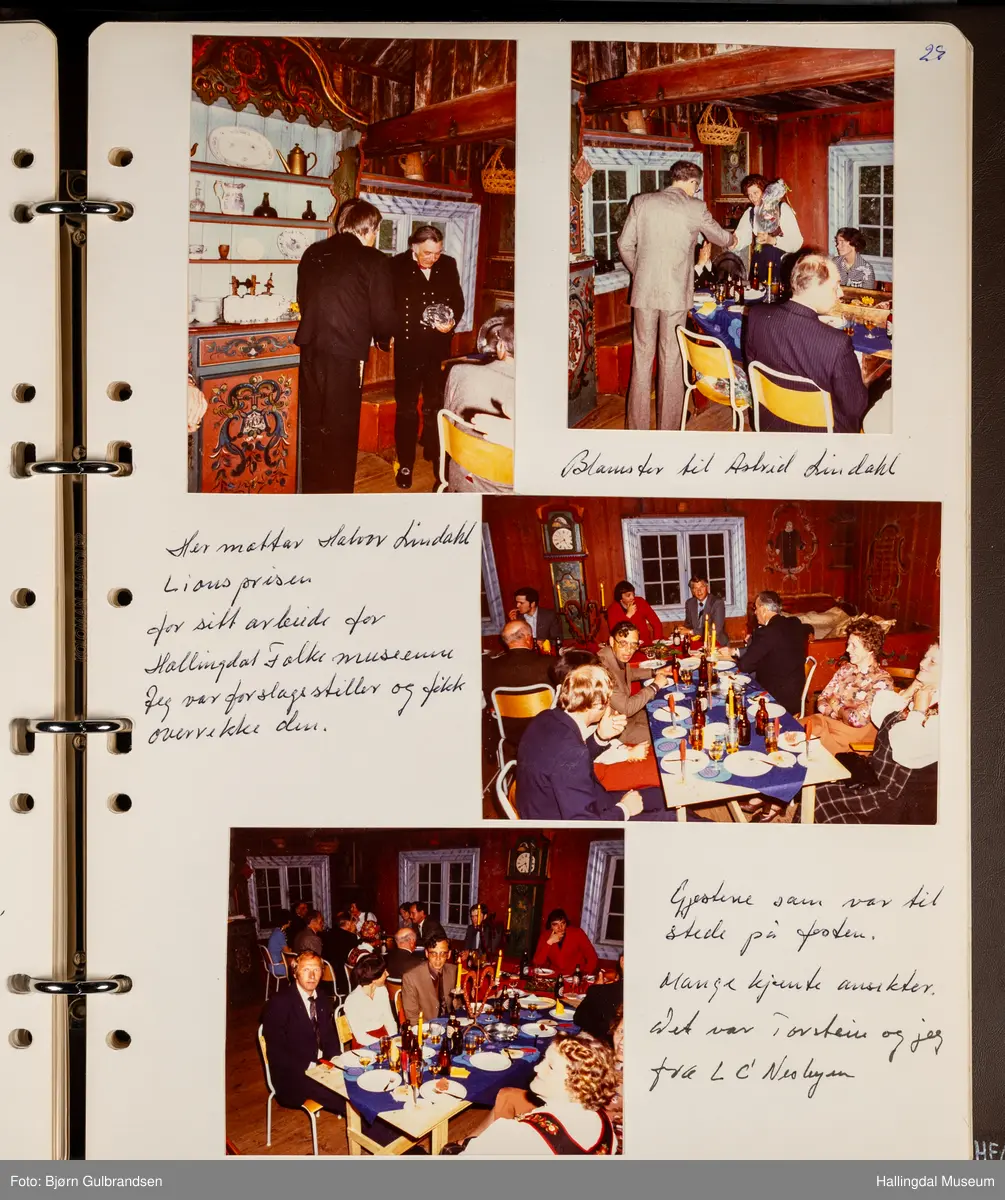 28
Blomster til Astrid Lindahl
Her mottar Halvor Lindahl
Lionsprisen
for sitt arbeide for
Hallingdal Folkemuseum
Jeg var forslagsstiller og fikk
overrekke den.
Gjestene som var til
stede på festen.
Mange kjente ansikter.
Det var Torstein og jeg
fra LC Nesbyen
HF/
Foto: Bjørn Gulbrandsen
Hallingdal Museum